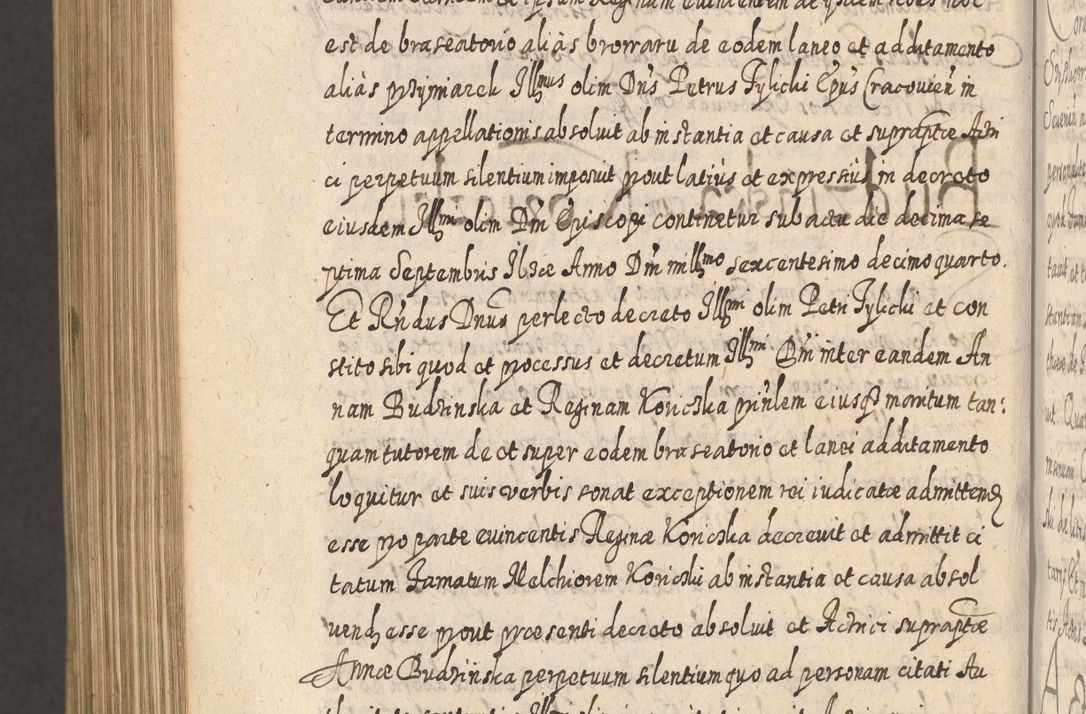 est de braseatorio aliàs browaru de eodem laneo et additamento
aliàs przymiarek Illmus olim Dns Petrus Tylicki Epus Cracovien in
termino appellationis absoluit ab instantia et causa et supraptæ Actri
ci perpetuum silentium imposuit prout latius et expressius in decreto
eiusdem Illmi olim Dni Episcopi continetur sub actu die decima se
ptima Septembris Ilzæ Anno Dni millmo sexcentesimo decimo quarto.
Et Rndus Dnus perlecto decreto Illmi olim Petri Tylicki et con
stito sibi quod et processus et decretum Illmi Dni inter eandem An
nam Budzinska et Reginam Koniczka pinlem eiusq maritum tan:
quam tutorem de et super eodem braseatorio et lanei additamento
loquitur et suis verbis sonat exceptionem rei iudicatæ admittend
esse pro parte evincentis Reginæ Koniczka decrevit et admittit ci
tatum Famatum Melchiorem Koniczki ab instantia et causa absol
vend esse prout præsenti decreto absoluit et Actrici supraptæ
Annæ Budzińska perpetuum silentium quo ad personam citati Au